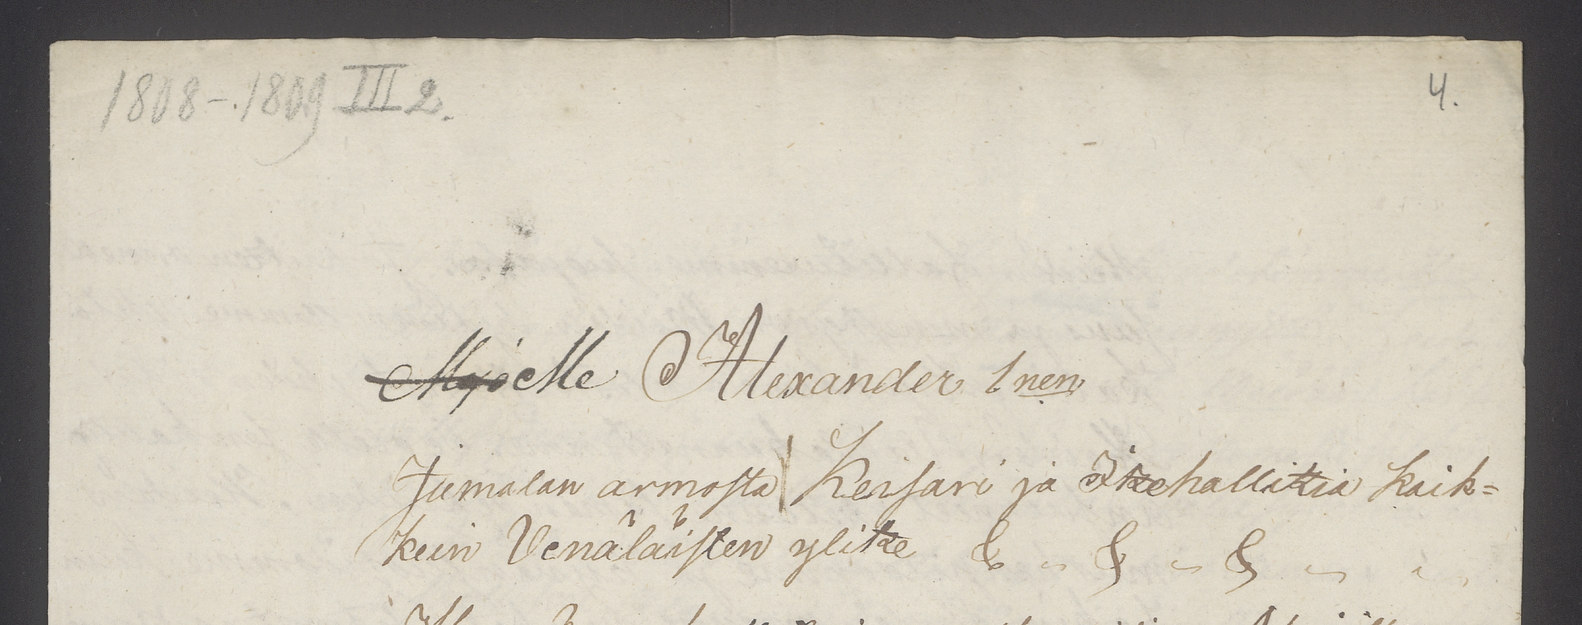 1808-1809 III 2.
4.
Me Alexander 1nen
Jumalan armosta Keisari ja Itzehallitzia kaik=
kein Venäläisten ylitze & - & - & -